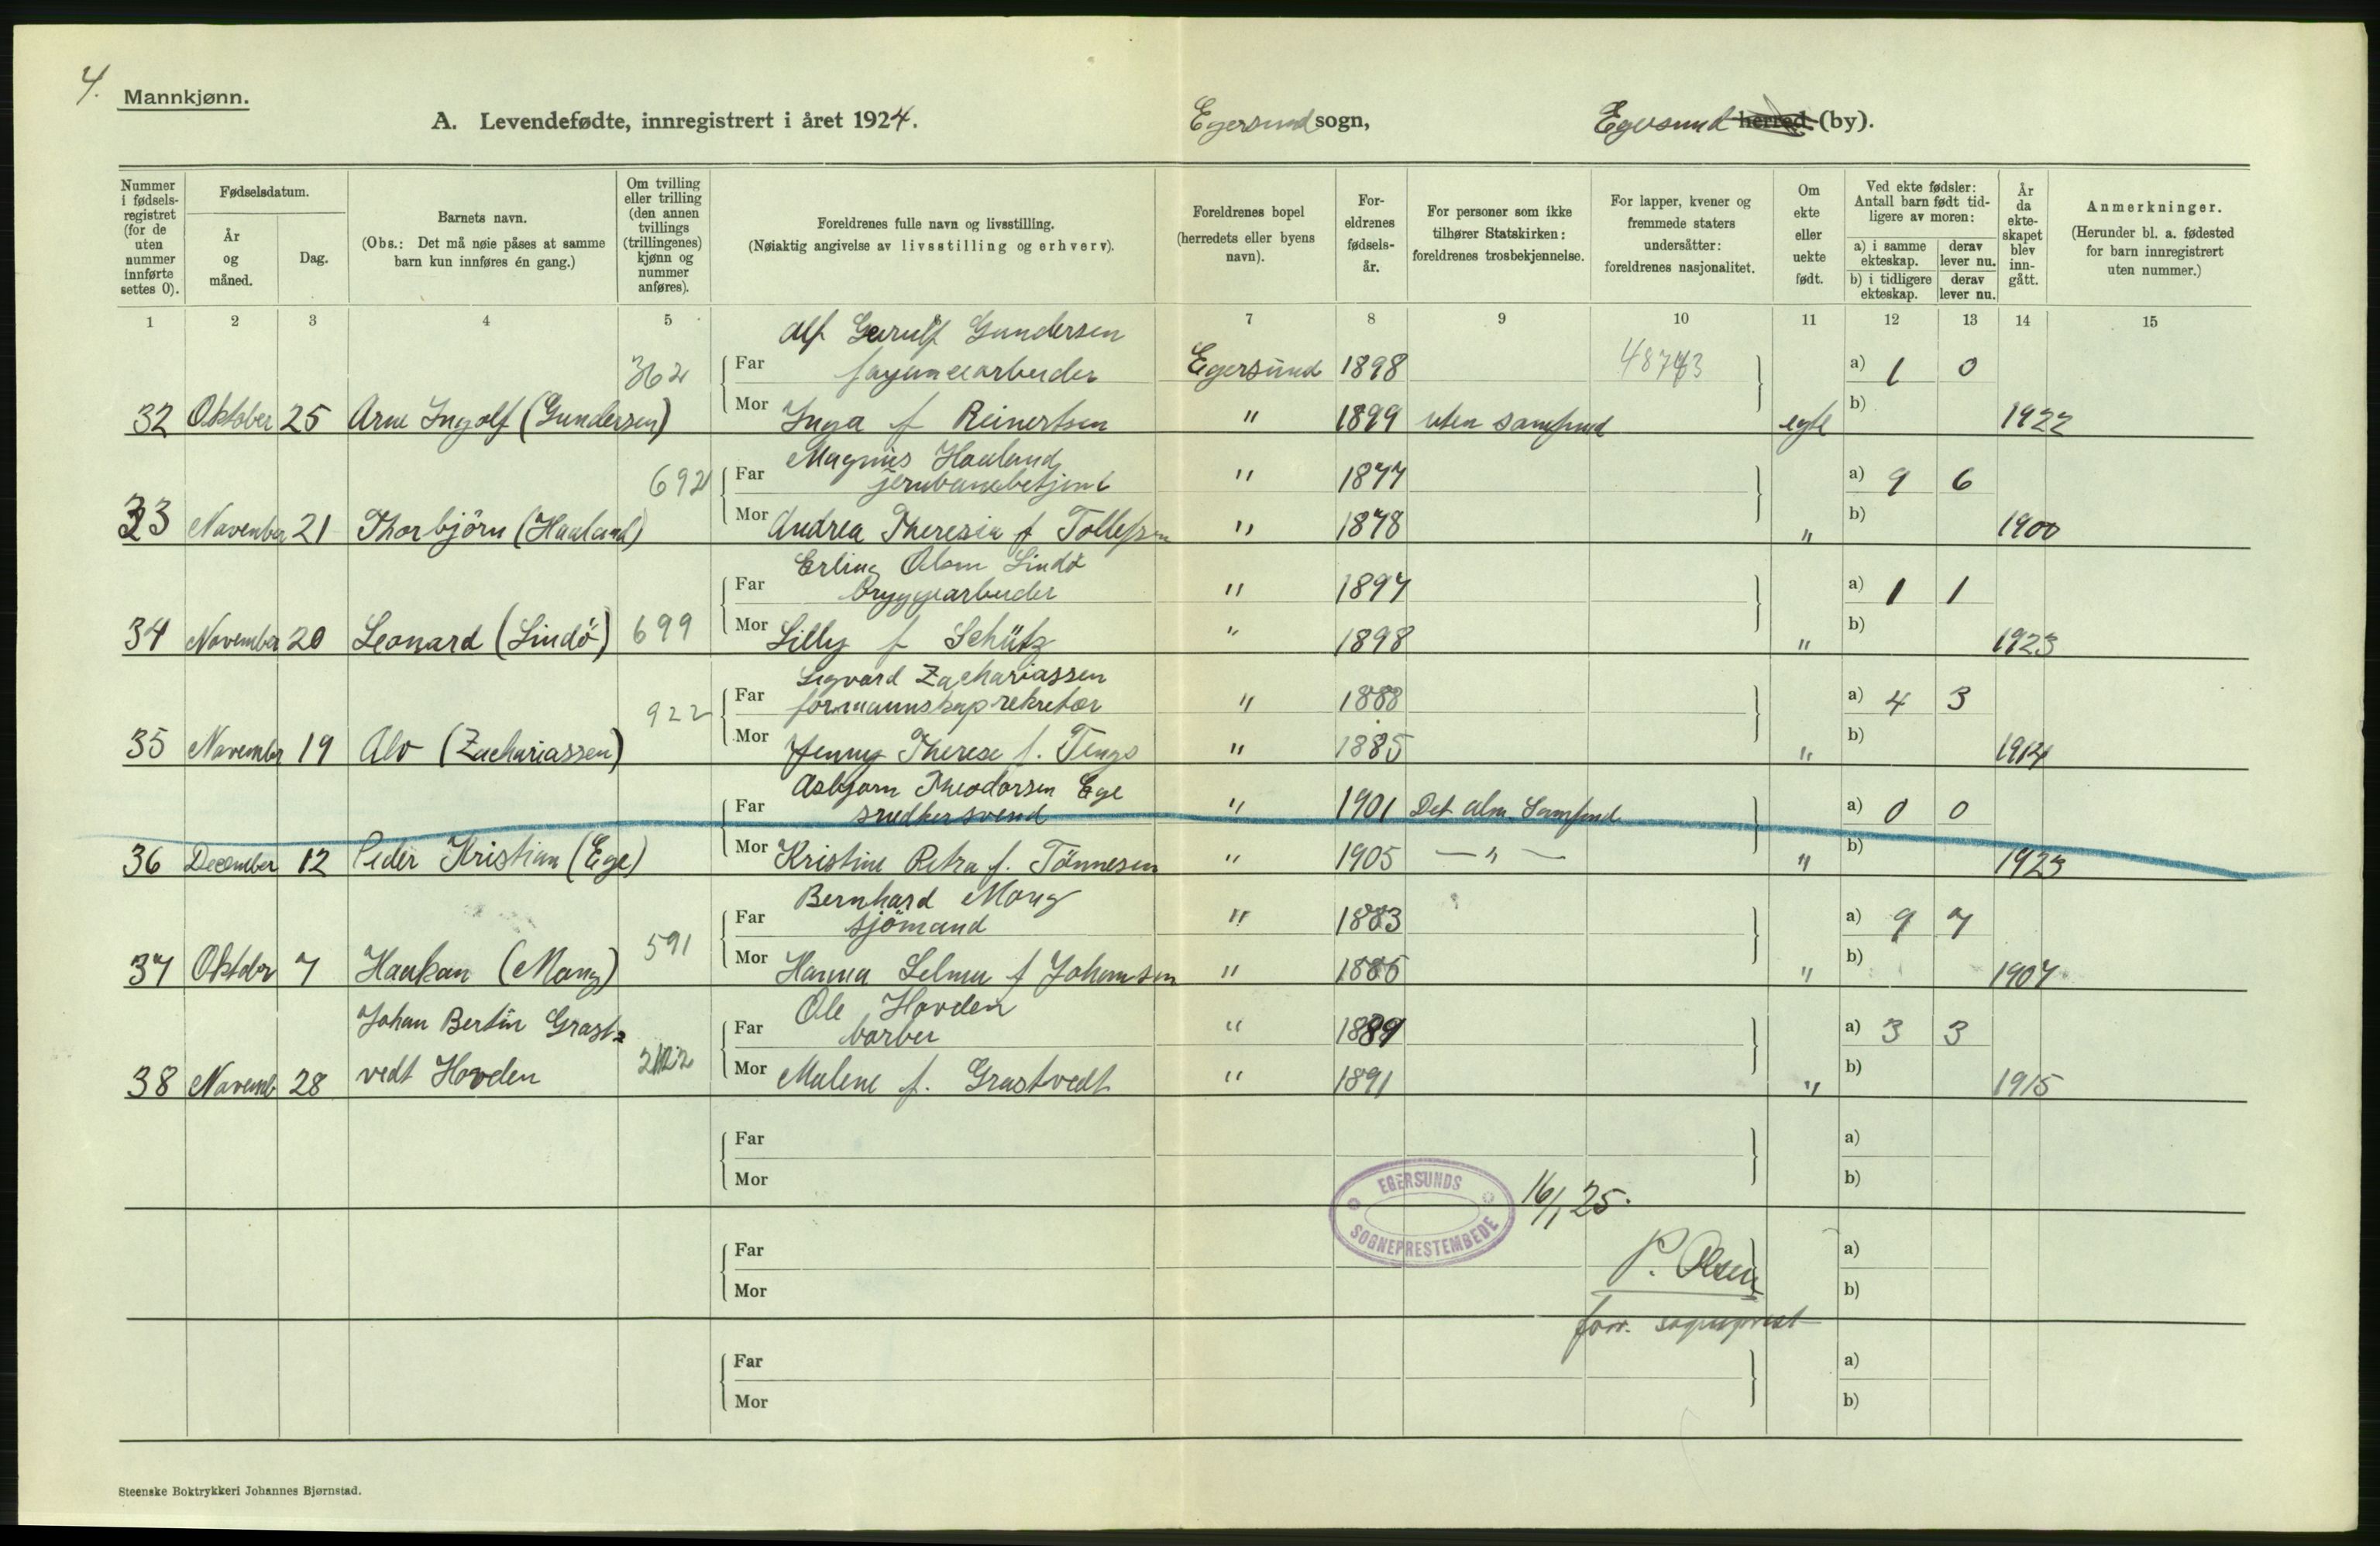 4.
Mannkjønn.
A. Levendefødte, innregistrert i året 1924.
Egersund sogn,
Egersund herred (by).
Nummer i fødsels-registret (for de uten nummer innførte settes 0).
Fødselsdatum.
År og måned.
Dag.
Barnets navn.
(Obs.: Det må nøie påses at samme barn kun innføres én gang.)
Om tvilling eller trilling (den annen tvillings (trillingenes) kjønn og nummer anføres).
Foreldrenes fulle navn og livsstilling.
(Nøiaktig angivelse av livsstilling og erhverv).
Foreldrenes bopel (herredets eller byens navn).
For-eldrenes fødsels-år.
For personer som ikke tilhører Statskirken: foreldrenes trosbekjennelse.
For lapper, kvener og fremmede staters undersåtter: foreldrenes nasjonalitet.
Om ekte eller uekte født.
Ved ekte fødsler: Antall barn født tid-ligere av moren:
a) i samme ekteskap.
derav lever nu.
b) i tidligere ekteskap.
derav lever nu.
År da ekte-skapet blev inn-gått.
Anmerkninger.
(Herunder bl. a. fødested for barn innregistrert uten nummer.)
1 2 3 4 5 6 7 8 9 10 11 12 13 14 15
Alf Gunulf Gundersen
362 Far fayancearbeider Egersund 1898 48743 a) 1 0
32 Oktober 25 Arne Ingolf (Gundersen) Mor Inga f Reinertsen " 1899 uten samfund egte b) 1922
Magnus Haaland
692 Far jernbanebetjent " 1877 a) 9 6
33 November 21 Thorbjörn (Haaland) Mor Andrea Theresia f Tollefsen " 1878 " b) 1900
Erling Olsen Lindö
Far bryggearbeider " 1897 a) 1 1
34 November 20 Leonard (Lindö) 699 Mor Lilly f Schütz " 1898 " b) 1923
Sigvard Zachariassen
922 Far formannskapsekretær " 1888 a) 4 3
35 November 19 Alv (Zachariassen) Mor Jenny Therese f. Tengs " 1885 " b) 1914
Asbjørn Theodorsen Ege
Far snedkersvend " 1901 Det alm. Samfund a) 0 0
36 December 12 Peder Kristian (Ege) Mor Kristine Petra f. Tönnesen " 1905 — " — " b) 1923
Bernhard Mong
591 Far sjömand " 1883 a) 9 7
37 Oktober 7 Haakon (Mong) Mor Hanna Selma f Johannsen " 1886 " b) 1907
Johan Bertin Grast= Ole Hovden
vedt Hovden Far barber " 1889 a) 3 3
38 Novemb 28 Mor Malene f. Grastvedt " 1891 " b) 1915
Far a)
Mor b)
EGERSUNDS SOGNEPRESTEMBEDE
16/1 25.
Far P. Olsen a)
Mor b)
forr. sogneprest
Far a)
Mor b)
Steenske Boktrykkeri Johannes Bjørnstad.